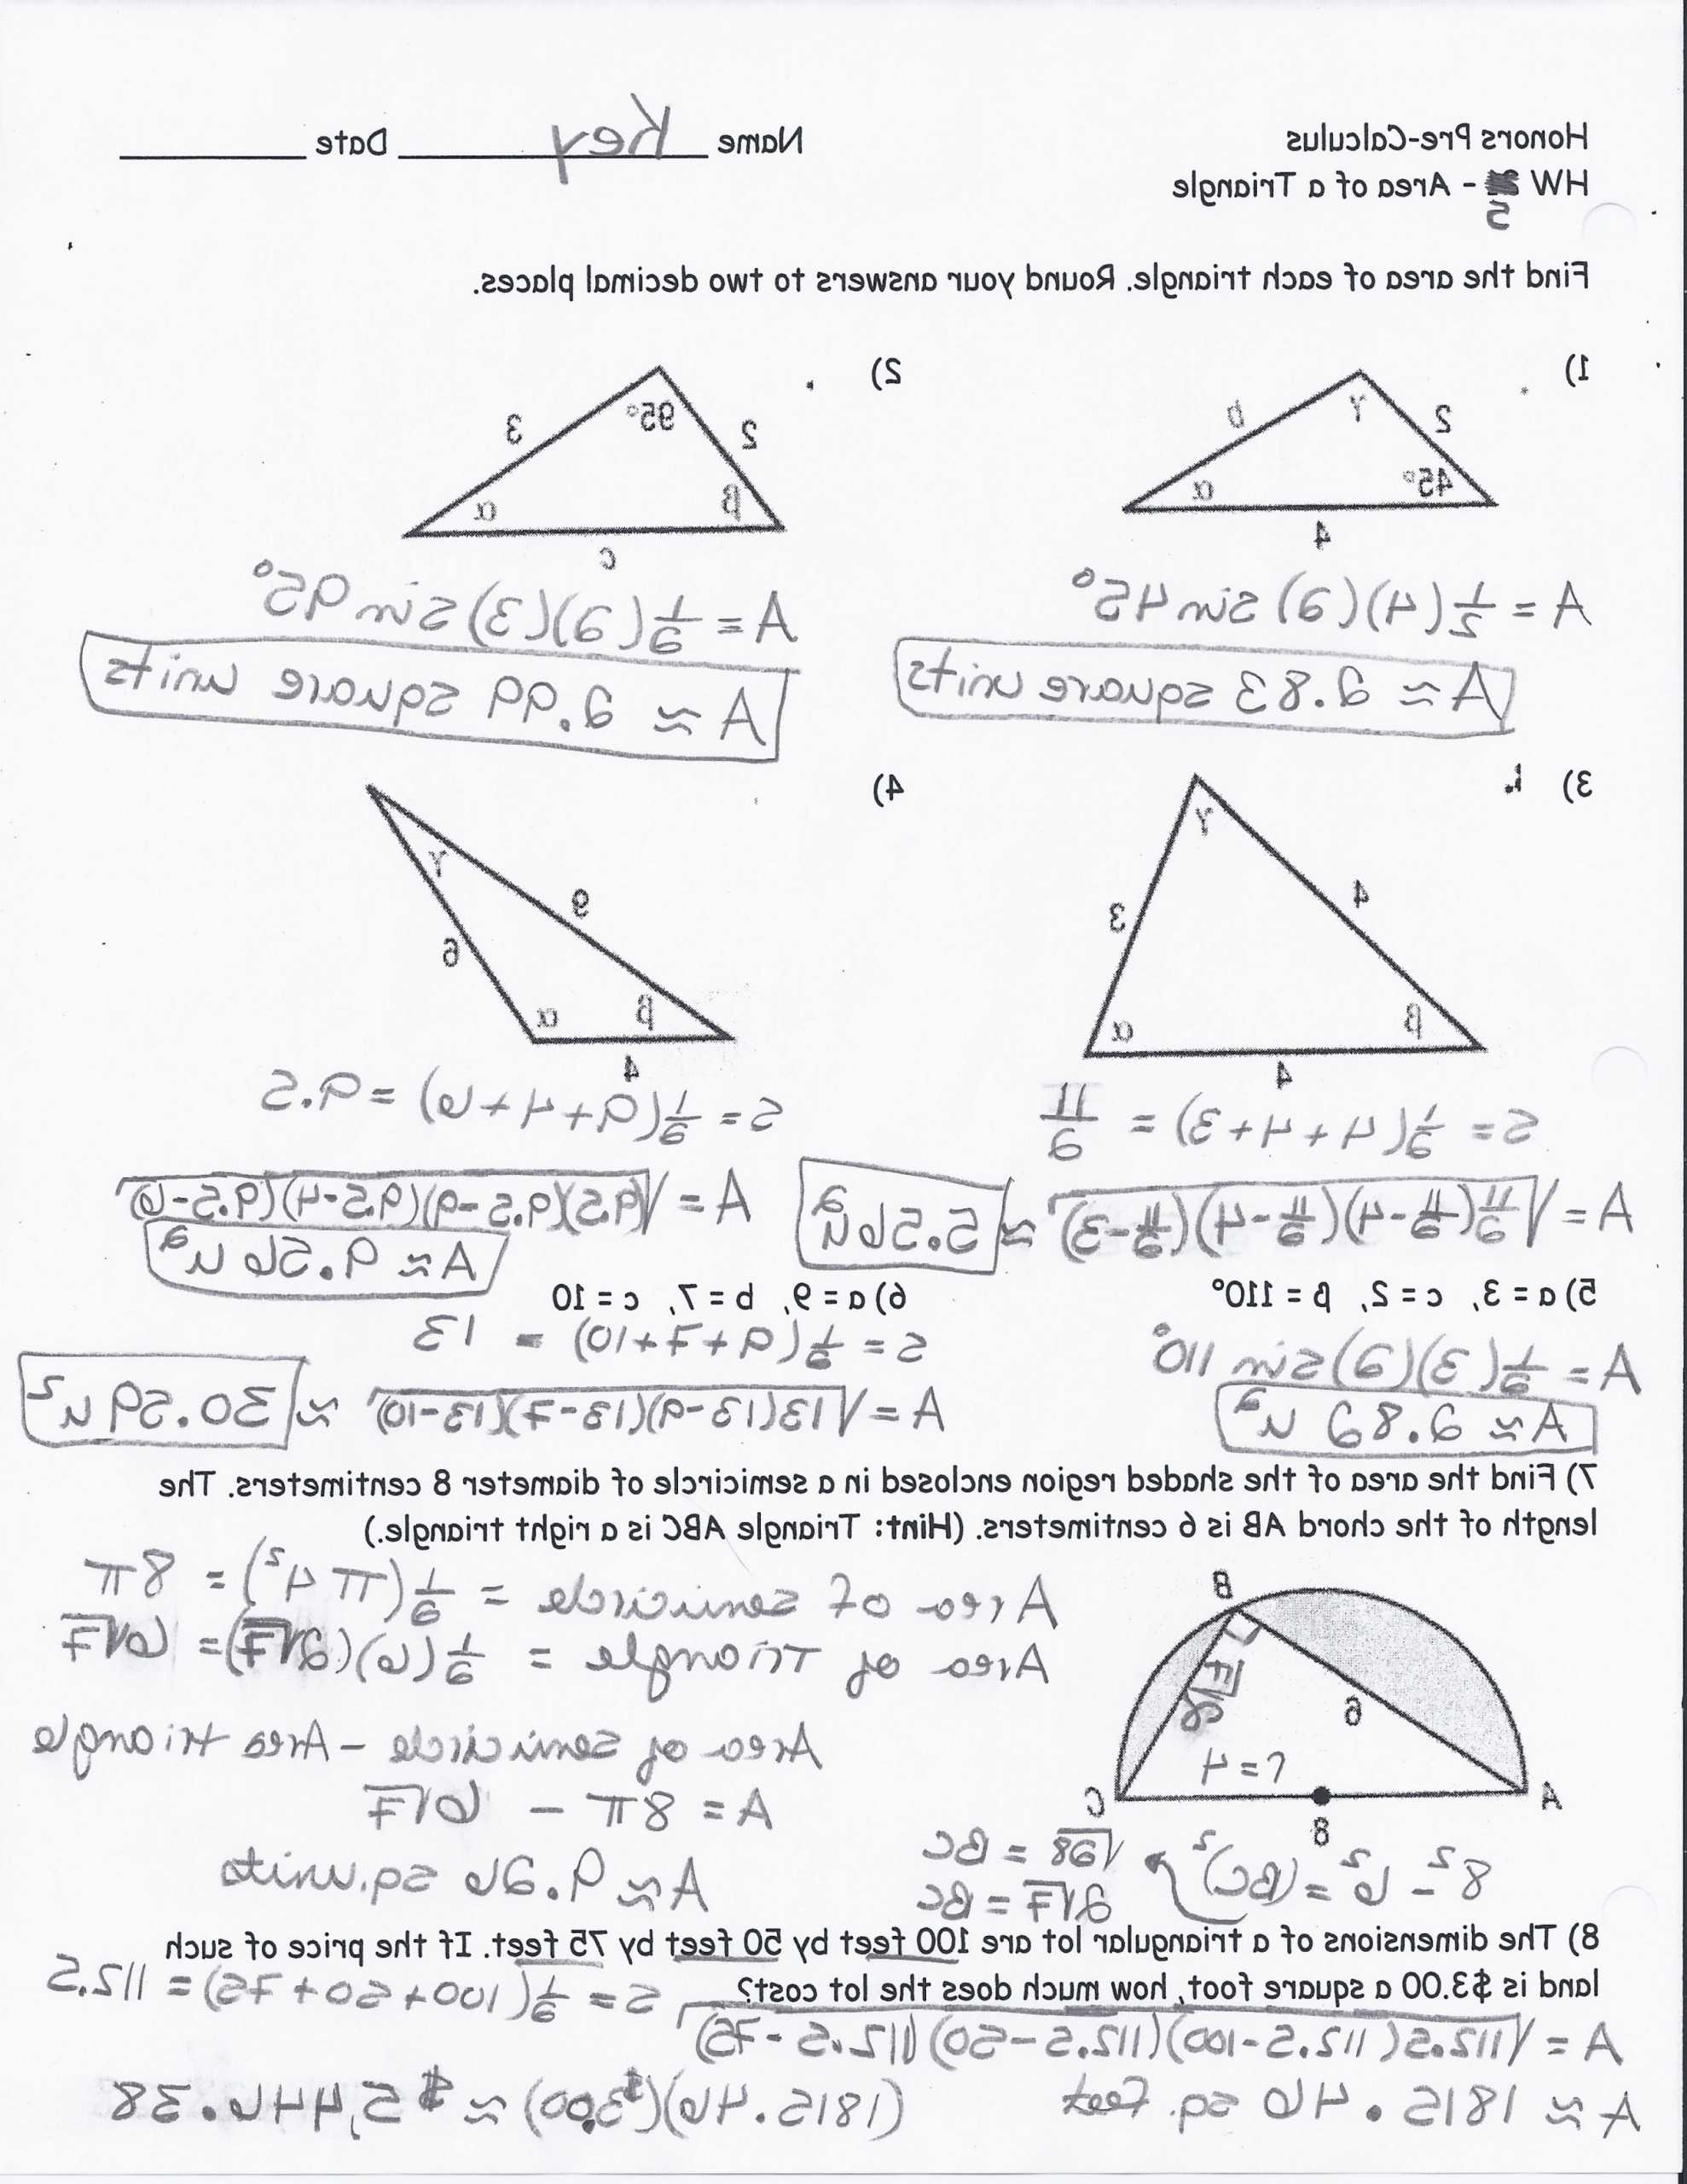 Honors Pre-Calculus
Name Key Date
HW - Area of a Triangle
5
Find the area of each triangle. Round your answers to two decimal places.
1)
2
γ
b
45°
α
4
A = 1/2 (4)(2) sin 45°
A ≈ 2.83 square units
2)
2
95°
3
β
α
c
A = 1/2 (2)(3) sin 95°
A ≈ 2.99 square units
3)
γ
4
3
β
α
4
s = 1/2 (4+4+3) = 11/2
A = √(11/2 (11/2 - 4)(11/2 - 4)(11/2 - 3)) ≈ 5.56 u²
4)
γ
9
6
β
α
4
s = 1/2 (9+4+6) = 9.5
A = √((9.5)(9.5-9)(9.5-4)(9.5-6))
A ≈ 9.56 u²
5) a = 3, c = 2, β = 110°
A = 1/2 (3)(2) sin 110°
A ≈ 2.82 u²
6) a = 9, b = 7, c = 10
s = 1/2 (9+7+10) = 13
A = √(13(13-9)(13-7)(13-10)) ≈ 30.59 u²
7) Find the area of the shaded region enclosed in a semicircle of diameter 8 centimeters. The
length of the chord AB is 6 centimeters. (Hint: Triangle ABC is a right triangle.)
B
6
2√7
r=4
A
C
8
8² - 6² = (BC)²
√28 = BC
2√7 = BC
Area of semicircle = 1/2 (π 4²) = 8π
Area of Triangle = 1/2 (6)(2√7) = 6√7
Area of semicircle - Area triangle
A = 8π - 6√7
A ≈ 9.26 sq. units
8) The dimensions of a triangular lot are 100 feet by 50 feet by 75 feet. If the price of such
land is $3.00 a square foot, how much does the lot cost?
s = 1/2 (100+50+75) = 112.5
A = √(112.5(112.5-100)(112.5-50)(112.5-75))
A ≈ 1815.46 sq. feet
(1815.46)($3.00) ≈ $5,446.38